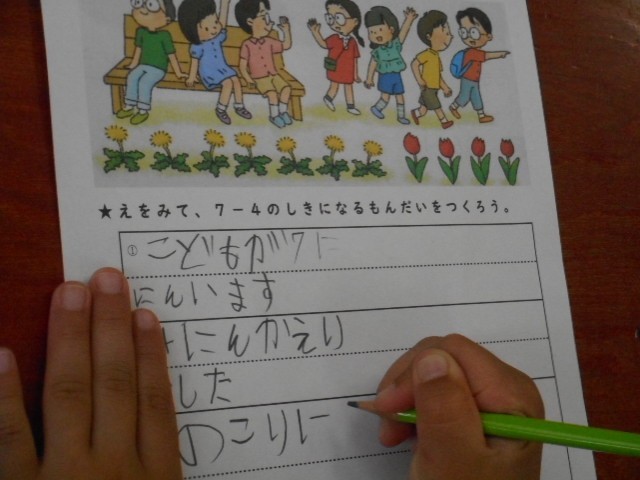 ★えをみて、7-4のしきになるもんだいをつくろう。
① こどもが7に
にんいます
にんかえり
した
のこりに